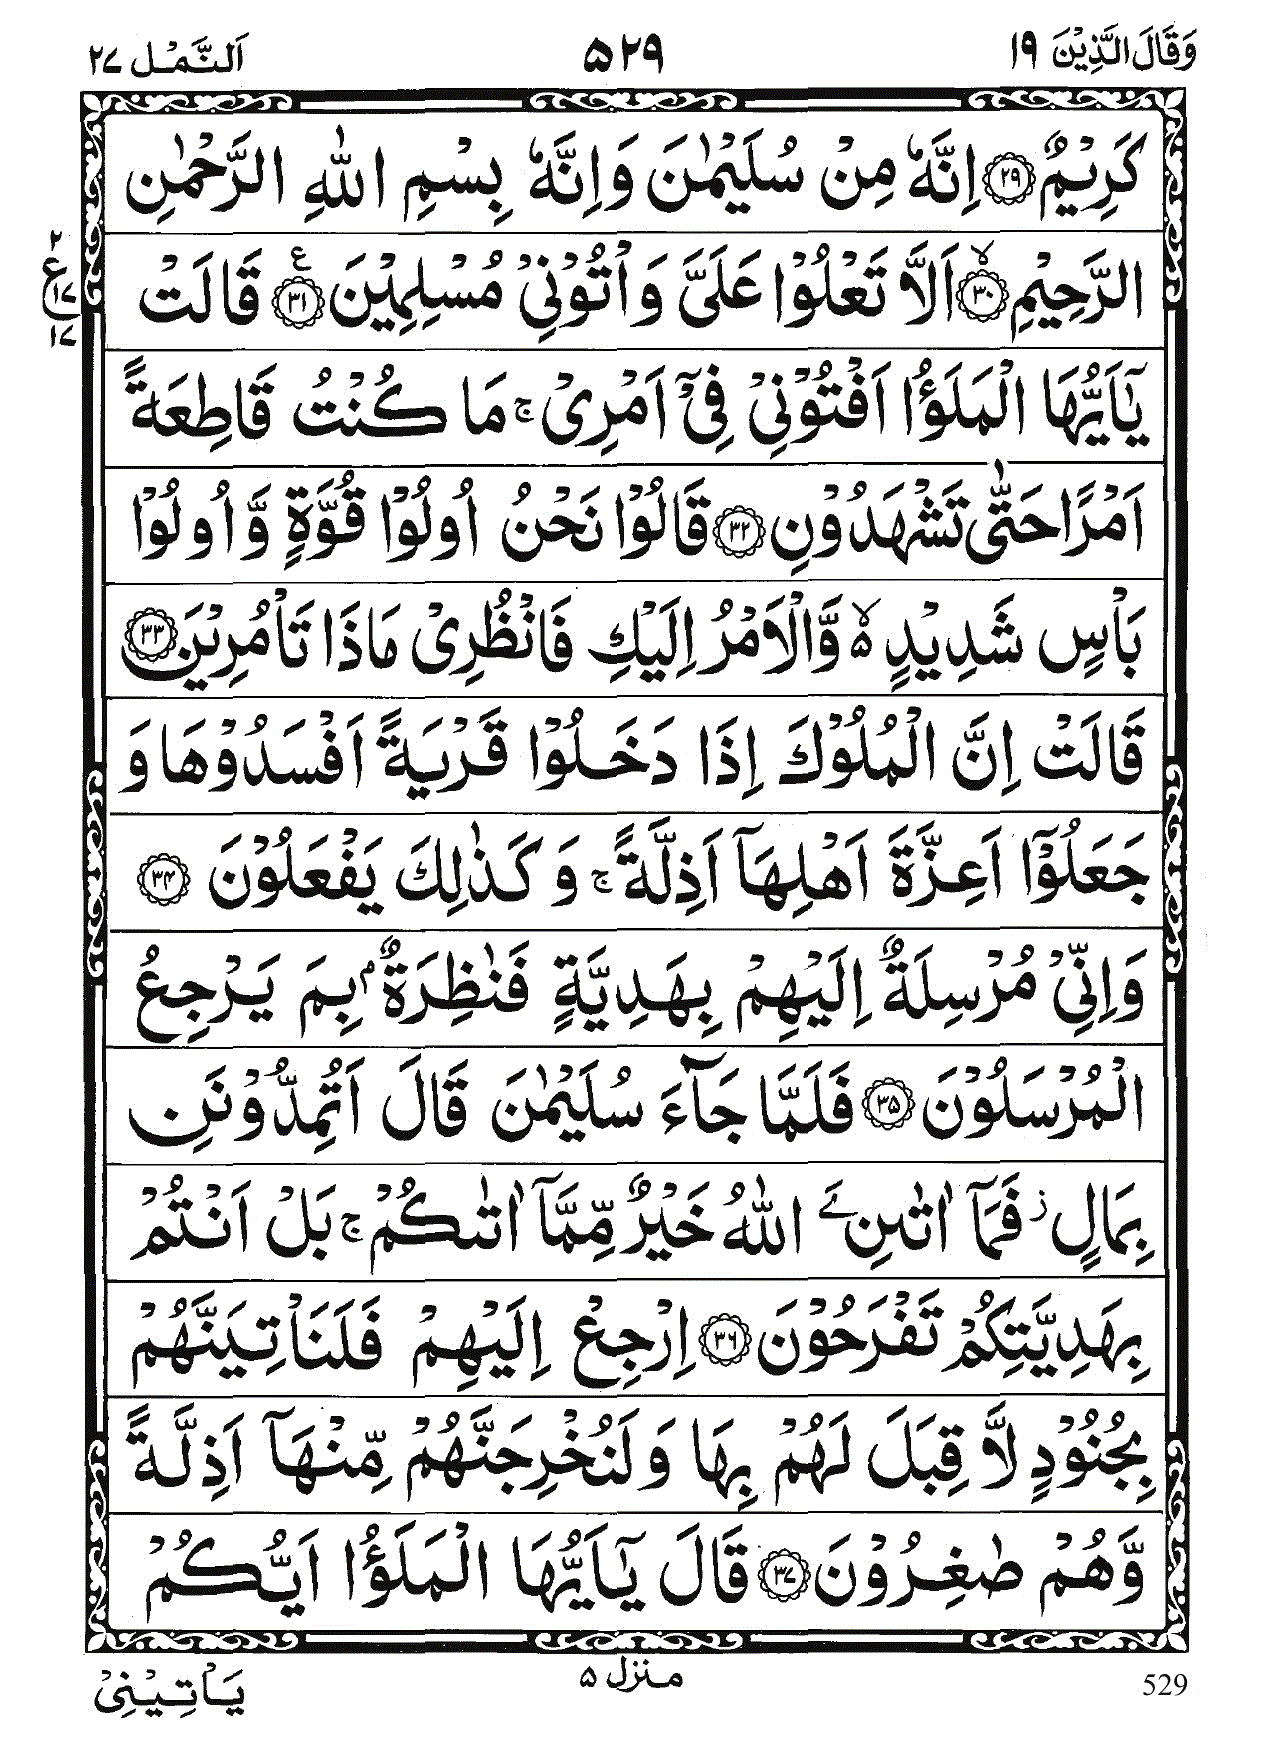 وَقَالَ الَّذِيْنَ ١٩ ۵۲۹ اَلنَّمْل ۲۷
كَرِيْمٌ ﴿۲۹﴾ اِنَّهٗ مِنْ سُلَيْمٰنَ وَاِنَّهٗ بِسْمِ اللّٰهِ الرَّحْمٰنِ
الرَّحِيْمِ ﴿۳۰﴾ۙ اَلَّا تَعْلُوْا عَلَيَّ وَاْتُوْنِيْ مُسْلِمِيْنَ ﴿۳۱﴾ع قَالَتْ
۲ ع ١٧ ١٧
يٰۤاَيُّهَا الْمَلَؤُا اَفْتُوْنِيْ فِيْۤ اَمْرِيْ ۚ مَا كُنْتُ قَاطِعَةً
اَمْرًا حَتّٰى تَشْهَدُوْنِ ﴿۳۲﴾ قَالُوْا نَحْنُ اُولُوْا قُوَّةٍ وَّاُولُوْا
بَاْسٍ شَدِيْدٍ ۵ۙ وَّالْاَمْرُ اِلَيْكِ فَانْظُرِيْ مَاذَا تَاْمُرِيْنَ ﴿۳۳﴾
قَالَتْ اِنَّ الْمُلُوْكَ اِذَا دَخَلُوْا قَرْيَةً اَفْسَدُوْهَا وَ
جَعَلُوْۤا اَعِزَّةَ اَهْلِهَاۤ اَذِلَّةً ۚ وَكَذٰلِكَ يَفْعَلُوْنَ ﴿۳۴﴾
وَاِنِّيْ مُرْسِلَةٌ اِلَيْهِمْ بِهَدِيَّةٍ فَنٰظِرَةٌۢ بِمَ يَرْجِعُ
الْمُرْسَلُوْنَ ﴿۳۵﴾ فَلَمَّا جَآءَ سُلَيْمٰنَ قَالَ اَتُمِدُّوْنَنِ
بِمَالٍ ؗ فَمَاۤ اٰتٰىنِۦَ اللّٰهُ خَيْرٌ مِّمَّاۤ اٰتٰىكُمْ ۚ بَلْ اَنْتُمْ
بِهَدِيَّتِكُمْ تَفْرَحُوْنَ ﴿۳۶﴾ اِرْجِعْ اِلَيْهِمْ فَلَنَاْتِيَنَّهُمْ
بِجُنُوْدٍ لَّا قِبَلَ لَهُمْ بِهَا وَلَنُخْرِجَنَّهُمْ مِّنْهَاۤ اَذِلَّةً
وَّهُمْ صٰغِرُوْنَ ﴿۳۷﴾ قَالَ يٰۤاَيُّهَا الْمَلَؤُا اَيُّكُمْ
529 منزل ۵ يَاْتِيْنِيْ